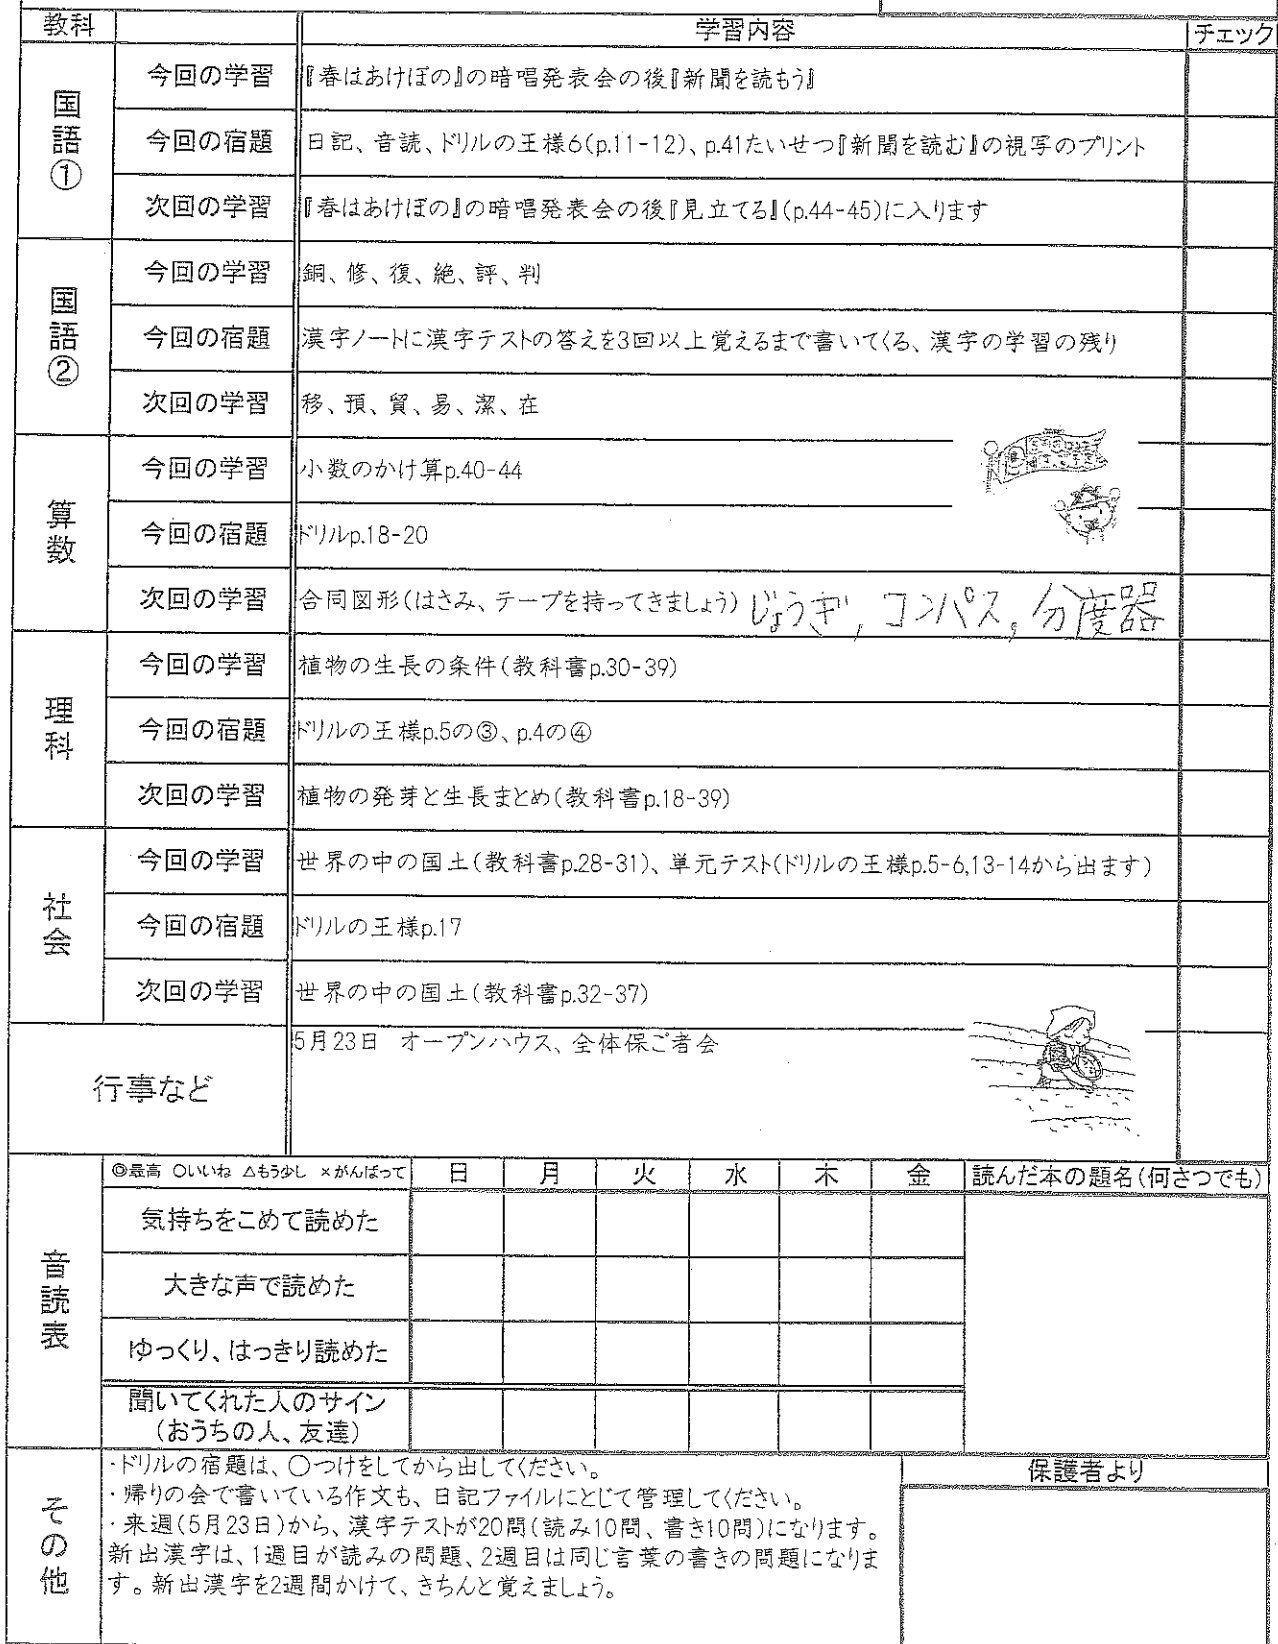 教科 学習内容 チェック
国語①
今回の学習 『春はあけぼの』の暗唱発表会の後『新聞を読もう』
今回の宿題 日記、音読、ドリルの王様6(p.11-12)、p.41たいせつ『新聞を読む』の視写のプリント
次回の学習 『春はあけぼの』の暗唱発表会の後『見立てる』(p.44-45)に入ります
国語②
今回の学習 銅、修、復、絶、評、判
今回の宿題 漢字ノートに漢字テストの答えを3回以上覚えるまで書いてくる、漢字の学習の残り
次回の学習 移、預、貿、易、潔、在
算数
今回の学習 小数のかけ算p.40-44
今回の宿題 ドリルp.18-20
次回の学習 合同図形(はさみ、テープを持ってきましょう) じょうぎ, コンパス, 分度器
理科
今回の学習 植物の生長の条件(教科書p.30-39)
今回の宿題 ドリルの王様p.5の③、p.4の④
次回の学習 植物の発芽と生長まとめ(教科書p.18-39)
社会
今回の学習 世界の中の国土(教科書p.28-31)、単元テスト(ドリルの王様p.5-6,13-14から出ます)
今回の宿題 ドリルの王様p.17
次回の学習 世界の中の国土(教科書p.32-37)
行事など 5月23日 オープンハウス、全体保ご者会
音読表
◎最高 ○いいね △もう少し ×がんばって 日 月 火 水 木 金 読んだ本の題名(何さつでも)
気持ちをこめて読めた
大きな声で読めた
ゆっくり、はっきり読めた
聞いてくれた人のサイン
(おうちの人、友達)
その他
・ドリルの宿題は、○つけをしてから出してください。
・帰りの会で書いている作文も、日記ファイルにとじて管理してください。
・来週(5月23日)から、漢字テストが20問(読み10問、書き10問)になります。
新出漢字は、1週目が読みの問題、2週目は同じ言葉の書きの問題になりま
す。新出漢字を2週間かけて、きちんと覚えましょう。
保護者より